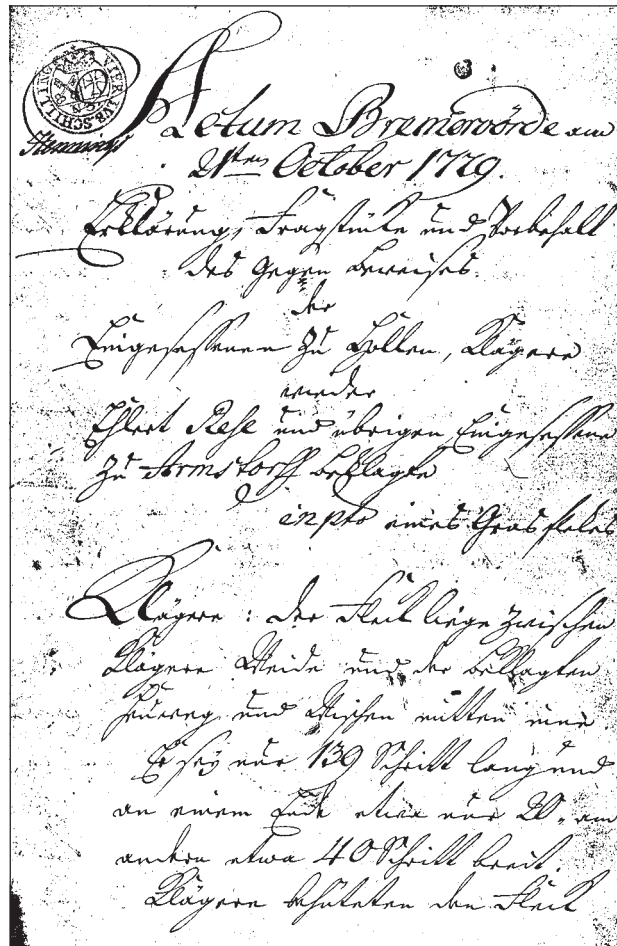 VIER LUB:SCHILLING
Actum Bremervörde am
21ten October 1779.
Erklärung, Fragstücke und Vorbehalt
des Gegen Beweises
der
Eingesessenen zu Hollen, Klägere
wieder
Ehlert Rese und übrigen Eingesessene
zu Armstorff Beklagte
in pto eines Grasflekes
Klägere: der Fleck liege zwischen
Klägere Weide und der Beklagten
Heuweg und Wischen mitten inne
Er sey nur 139 Schritt lang und
an einem Ende etwa nur 20, am
andern etwa 40 Schritt breit.
Klägere behüteten den Fleck